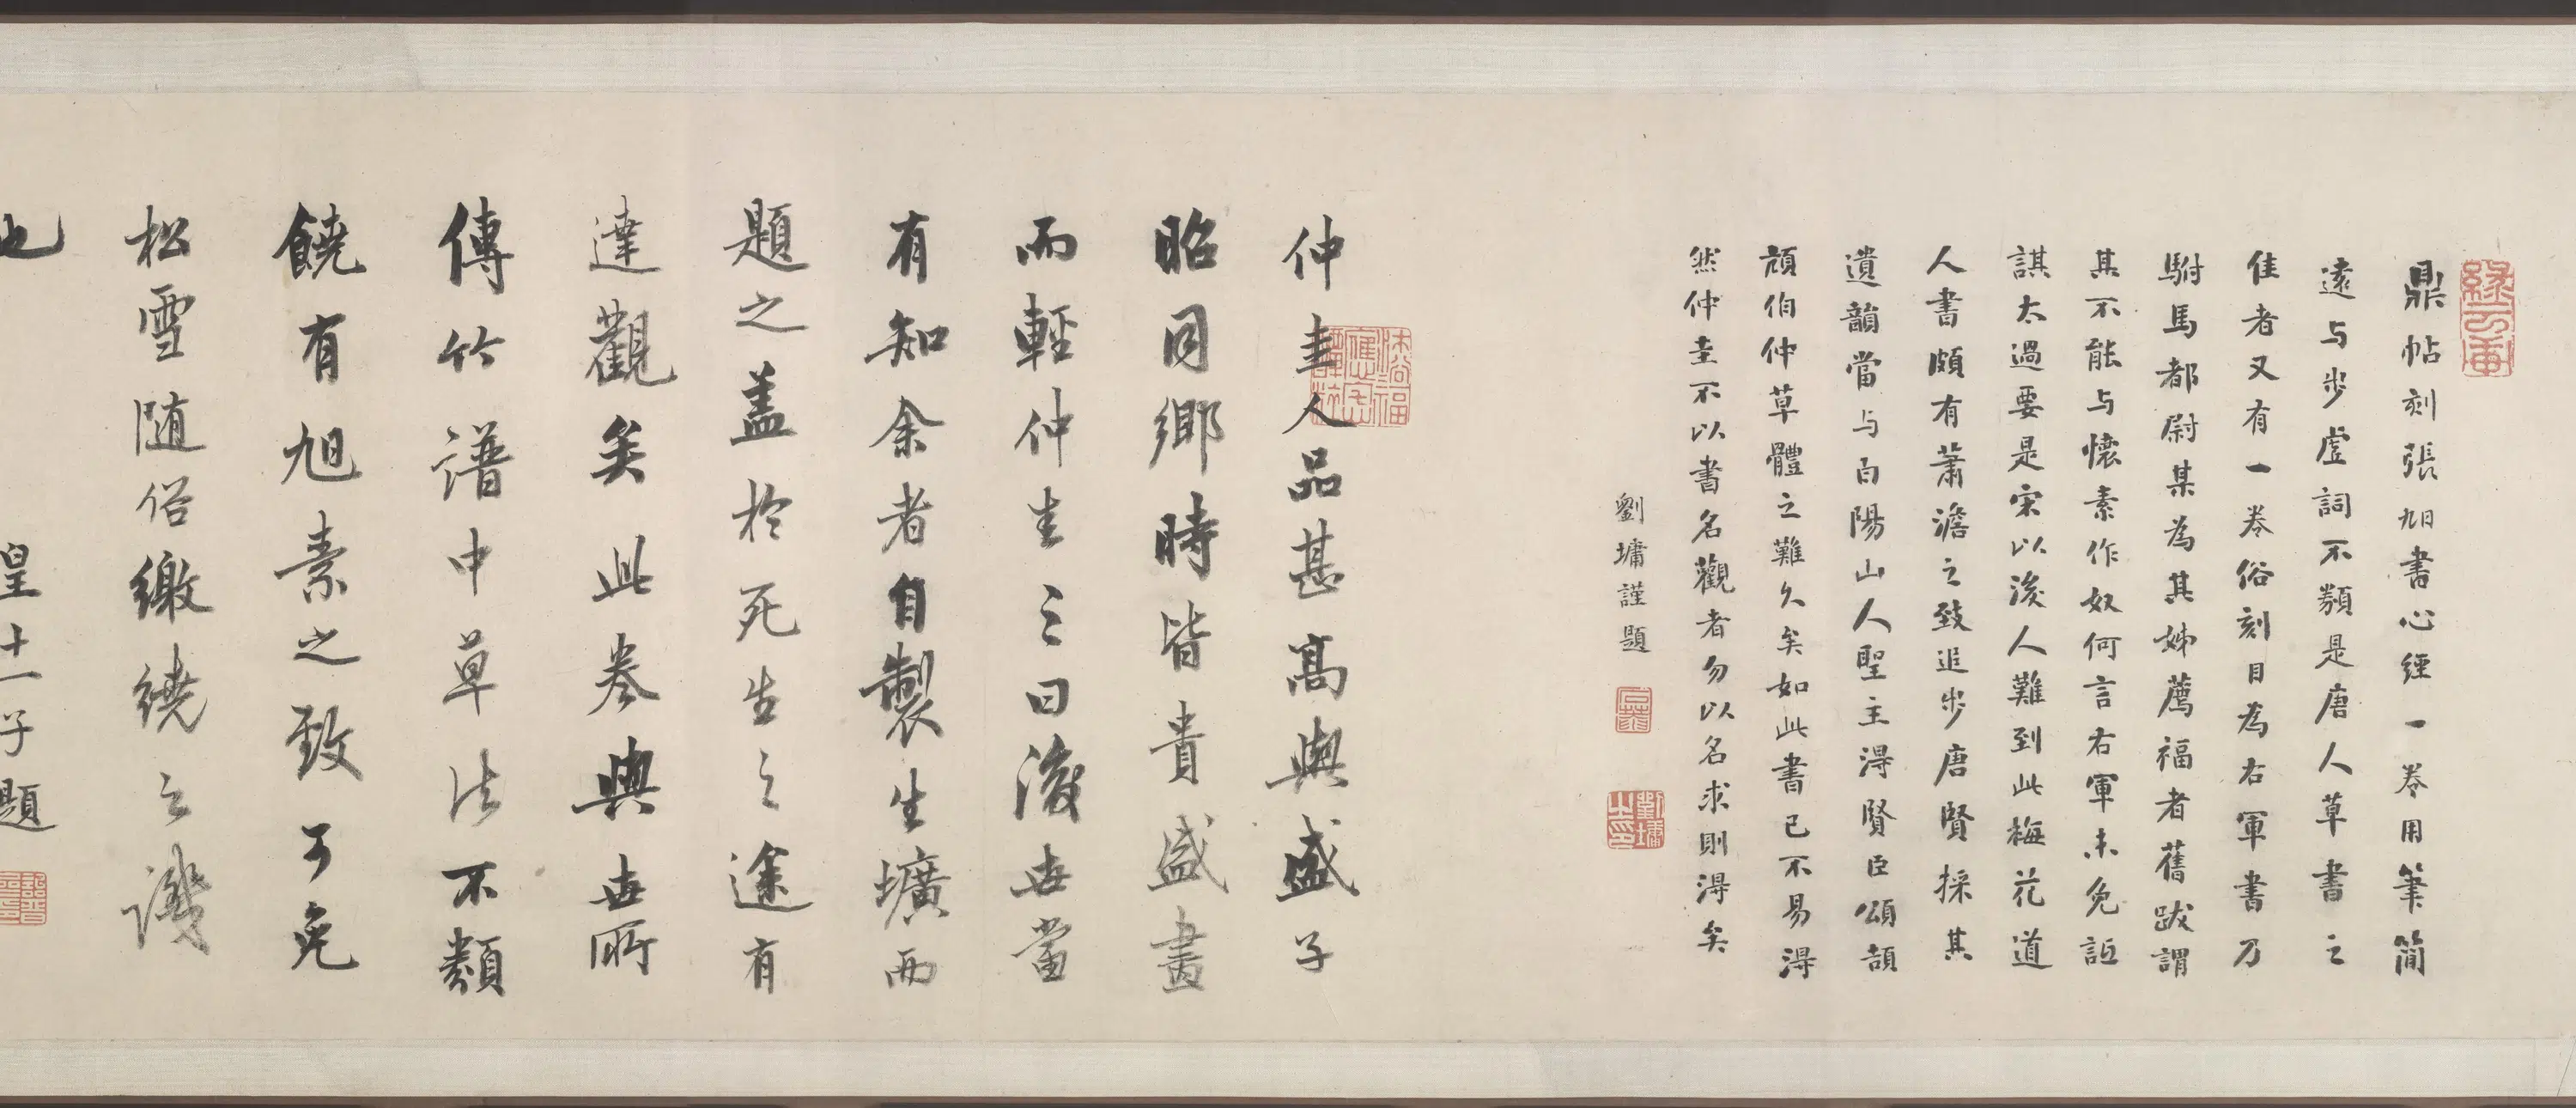 鼎帖刻張旭書心經一卷用筆簡
遠与步虛詞不類是唐人草書之
佳者又有一卷俗刻目為右軍書乃
駙馬都尉某為其姊薦福者舊跋謂
其不能与懷素作奴何言右軍未免詆
諆太過要是宋以後人難到此梅花道
人書頗有蕭澹之致追步唐賢採其
遺韻當与白陽山人聖主得賢臣頌頡
頏伯仲草體之難久矣如此書已不易得
然仲圭不以書名觀者勿以名求則得矣
劉墉謹題
劉墉之印
仲圭人品甚高與盛子
昭同鄉時皆貴盛畫
而輕仲圭圭曰後世當
有知余者自製生壙而
題之蓋於死生之途有
達觀矣此卷與世所
傳竹譜中草法不類
饒有旭素之致可免
松雪隨俗繳繞之譏
也
皇十一子題